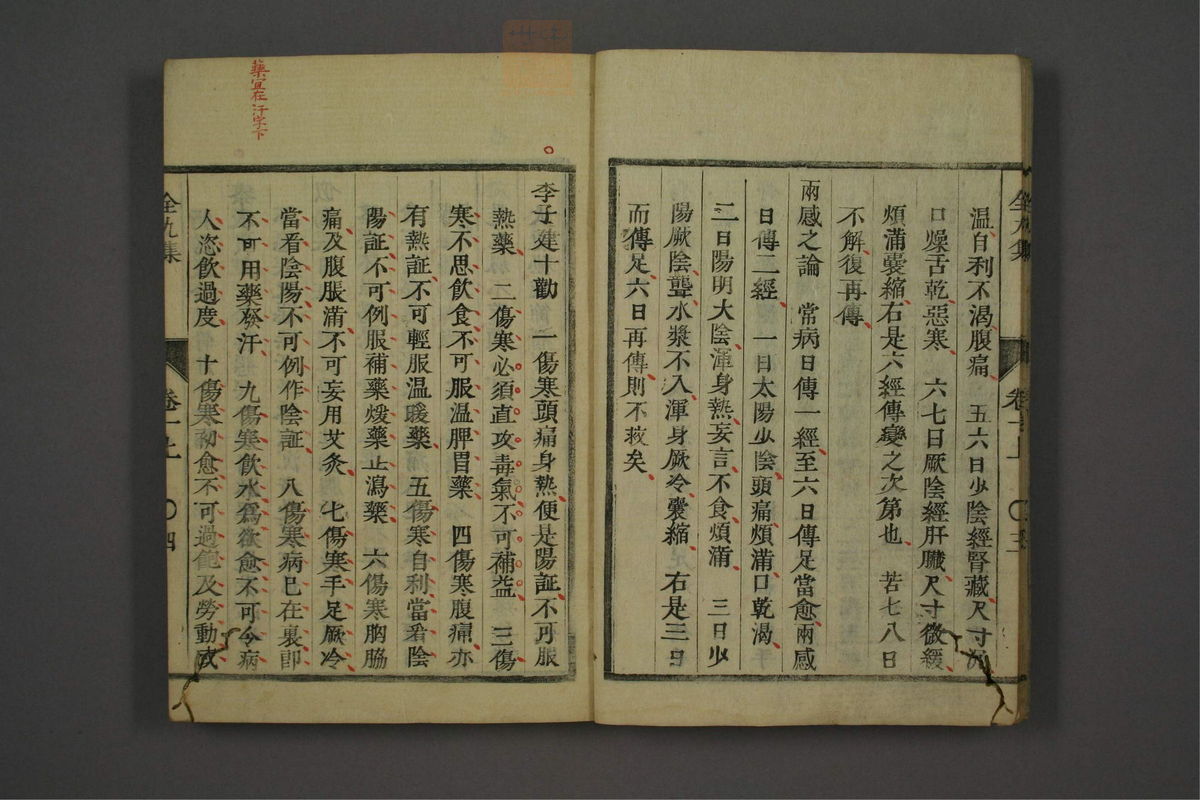 温自利不渴腹痛　五六日少陰經腎藏尺寸沉
口燥舌乾惡寒　六七日厥陰經肝臟尺寸微緩
煩滿囊縮右是六經傳變之次第也　若七八日
不解復再傳
兩感之論　常病日傳一經至六日傳足當愈兩感
日傳二經　一日太陽少陰頭痛煩滿口乾渴
二日陽明大陰渾身熱妄言不食煩滿　三日少
陽厥陰聾水漿不入渾身厥冷囊縮　右是三日
而傳足六日再傳則不救矣
全九集
卷一上
三
藥宜在汗字下
李子建十勸　一傷寒頭痛身熱便是陽証不可服
熱藥　二傷寒必須直攻毒氣不可補益　三傷
寒不思飲食不可服温脾胃藥　四傷寒腹痛亦
有熱証不可輕服温暖藥　五傷寒自利當看陰
陽証不可例服補藥煖藥止瀉藥　六傷寒胸脇
痛及腹脹滿不可妄用艾灸　七傷寒手足厥冷
當看陰陽不可例作陰証　八傷寒病已在裏即
不可用藥發汗　九傷寒飲水爲欲愈不可令病
人恣飲過度　十傷寒初愈不可過飽及勞動或
全九集
卷一上
四